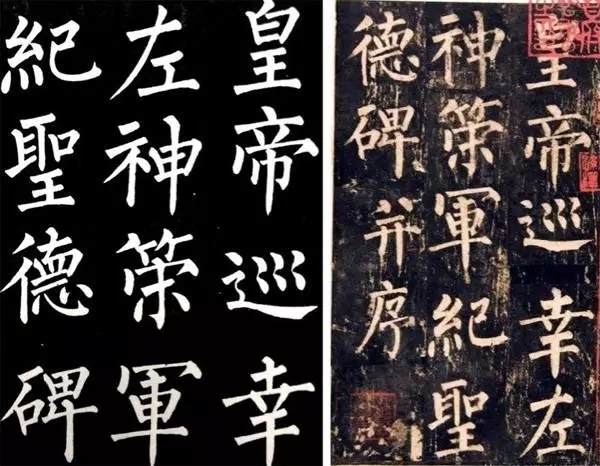 皇帝巡幸
左神策軍
紀聖德碑
皇帝巡幸左
神策軍紀聖
德碑并序